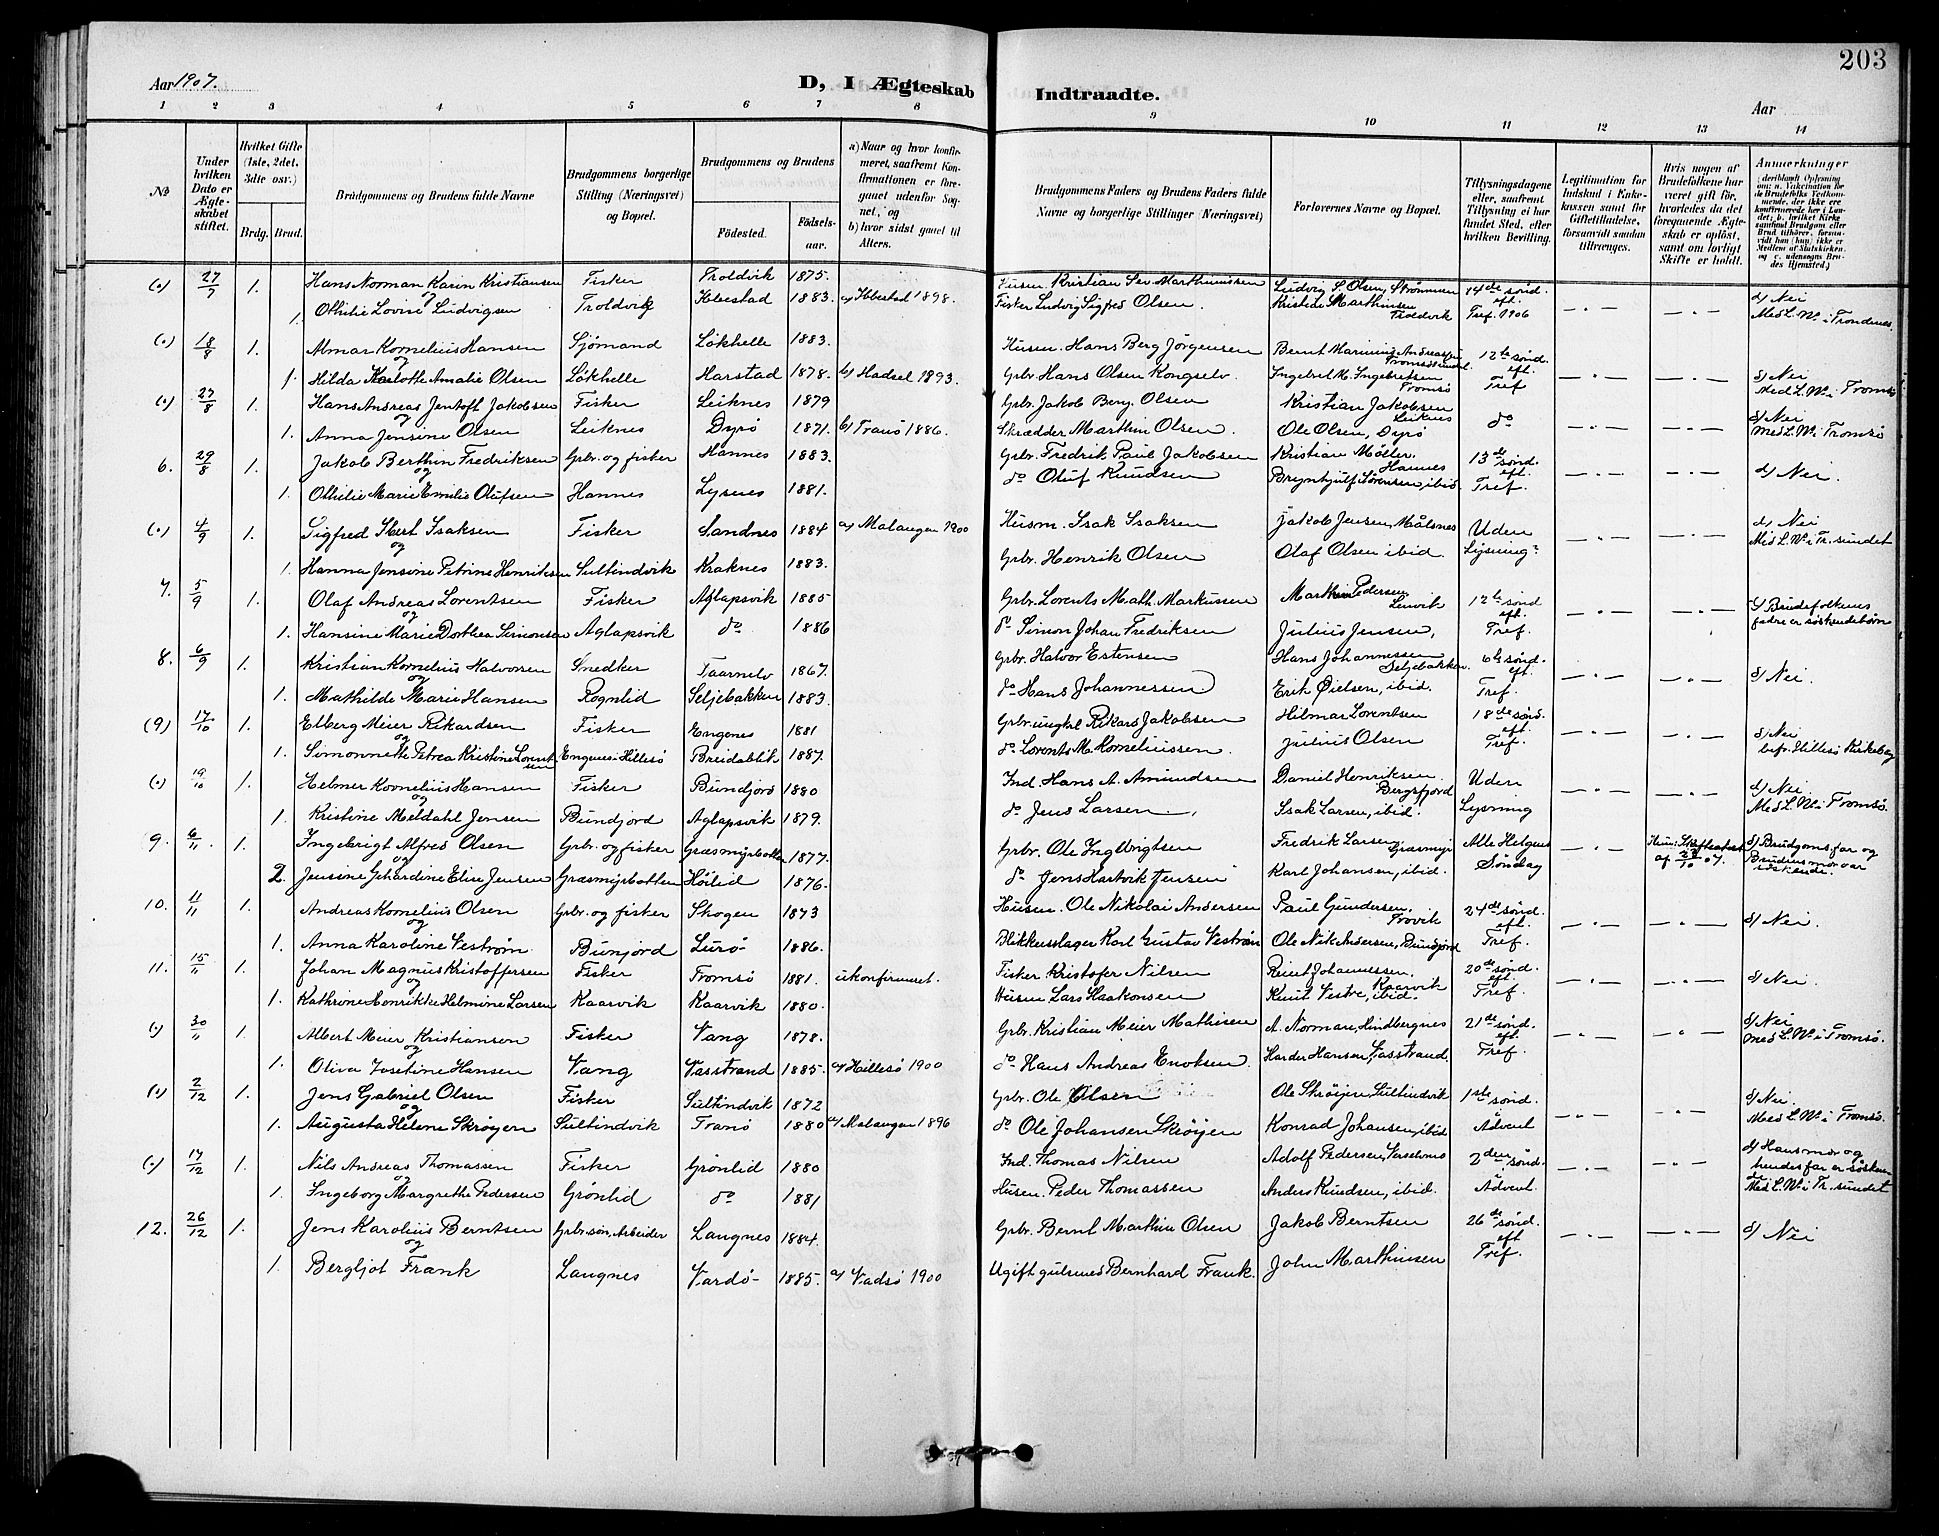 203
Aar 1907.
D, I Ægteskab Indtraadte.
Aar
1 2 3 4 5 6 7 8 9 10 11 12 13 14
No
Under hvilken Dato er Ægteskabet stiftet.
Hvilket Gifte (1ste, 2det, 3die osv.)
Brdg. Brud.
Brudgommens og Brudens fulde Navne
Brudgommens borgerlige Stilling (Næringsvei) og Bopæl.
Brudgommens og Brudens
Födested.
Födselsaar.
a) Naar og hvor konfirmeret, saafremt Konfirmationen er foregaaet udenfor Sognet, og
b) hvor sidst gaaet til Alters.
Brudgommens Faders og Brudens Faders fulde Navne og borgerlige Stillinger (Næringsvei)
Forlovernes Navne og Bopæl.
Tillysningsdagene eller, saafremt Tillysning ei har fundet Sted, efter hvilken Bevilling.
Legitimation for Indskud i Enkekassen samt for Giftetilladelse, forsaavidt saadan tiltrænges.
Hvis nogen af Brudefolkene har været gift för, hvorledes da det foregaaende Ægteskab er oplöst, samt om lovligt Skifte er holdt.
Anmerkninger
(0) 27/7 1. Hans Norman Karin Kristiansen Fisker Troldvik 1875. Husm. Kristian Sev. Marthinussen Ludvig S. Olsen, Strømmen 14de sønd. d) Nei
og
1. Othilie Lovise Ludvigsen Troldvik Ibbestad 1883. a) Ibbestad 1898. Fisker Ludvig Sigfred Olsen Kristide Marthinsen Troldvik eft. Tref. 1906 Med L.W. i Trondenes
(0) 18/8 1. Almar Kornelius Hansen Sjömand Lökhelle 1883. Husm. Hans Berg Jørgensen Bernt Marinius Andreassen Tromsøsundet. 12te sønd. eft. d) Nei
og
1. Hilda Karlotte Amalie Olsen Lökhelle Harstad 1878. a) Hadsel 1893. Grbr. Hans Olsen Kongselv. Ingebret M. Ingebretsen Tromsø Tref Med L.W. i Tromsø
(0) 27/8 1. Hans Andreas Jentoft Jakobsen Fisker Leiknes 1879 Grbr. Jakob Berg. Olsen Kristian Jakobsen Leiknes do d) Nei
og
1. Anna Jensine Olsen Leiknes Dyrø 1871. b) Tranö 1886. Skrædder Marthin Olsen. Ole Olsen, Dyrø Med L.W. i Tromsø
6. 29/8 1. Jakob Berthin Fredriksen Grbr. og fisker Hannes 1883. Grbr. Fredrik Paul Jakobsen Kristian Möller. Hannes 13de sønd. eft. d) Nei.
og
1. Othilie Marie Emilie Olufsen Hannes Lysnes 1881. do Oluf Knudsen Brynhjulf Sørensen, ibid. Tref.
(0) 4/9 1. Sigfred Ibert Isaksen Fisker Sandnes 1884 a) Malangen 1900 Husm. Isak Isaksen Jakob Jensen, Målsnes Uden d) Nei
og
1. Hanna Jensine Petrine Henriksen Sultindvik Kraknes 1883. Grbr. Henrik Olsen Olaf Olsen ibid. Lysning. Med L.W. i Tr. sundet
7. 5/9 1. Olaf Andreas Lorentsen Fisker Aglapsvik 1885 Grbr. Lorents Math. Markussen Marthin Pedersen Lenvik 12te sønd eft. d) Brudefolkenes
og
1. Hansine Marie Dorthea Simonsen Aglapsvik do 1886 do Simon Johan Fredriksen Julius Jensen, Tref. fædre er søskendebørn
8. 6/9 1. Kristian Kornelius Halvorsen Snedker Taarnelv 1867. Grbr. Halvor Estensen Hans Johannessen Seljebakken. 6te sønd. eft. d) Nei.
og
1. Mathilde Marie Hansen Rognlid Seljebakken 1883. do Hans Johannessen Erik Øielsen, ibid. Tref.
(9) 17/10 1. Elberg Meier Rikardsen Fisker Engenes 1881 Grbr. ungkl. Rikard Jakobsen Hilmar Lorentsen 18de sønd. eft. d) Nei
og
1. Simonnette Petrea Kristine Lorentsen Engenes i Hillesø Breidablik 1887. do Lorents M. Korneliussen. Julius Olsen Tref. befr. Hillesø Kirkebog
(0) 19/10 1. Helmer Kornelius Hansen Fisker Bundjord 1880 Ind. Hans A. Amundsen Daniel Henriksen. Bergsfjord Uden d) Nei
og
1. Kristine Meldahl Jensen Bundjord Aglapsvik 1879. do Jens Larsen Isak Larsen, ibid. Lysning Med L.W. i Tromsø.
9. 6/11 1. Ingebrigt Alfred Olsen Grbr. og fisker Græsmyrbotten 1877. Grbr. Ole Ingebrigtsen Fredrik Larsen Græsmyr Alle Helgens Skifteattest d) Brudgoms far og
og
2. Jensine Gehardine Elise Jensen Græsmyrbotten Høilid 1876. do Jens Hartvik Jensen Karl Johansen, ibid. Søndag af 28/10 07. Brudens mor var søskende.
10. 11/11 1. Andreas Kornelius Olsen Grbr. og fisker Skogen 1873 Husm. Ole Nikolai Andersen Paul Gundersen, Frovik 24de sønd. eft. d) Nei.
og
1. Anna Karoline Vestrøm Bunjord Lurø 1886. Blikkenslager Karl Gustav Vestrøm Ole Nik. Andersen, Bundjord Tref.
11. 15/11 1. Johan Magnus Kristoffersen Fisker Tromsø 1881. ukonfirmeret. Fisker Kristofer Nilsen Reint Johannessen. Kaarvik 20de sønd. eft. d) Nei.
og
1. Kathrine Henrikke Helmine Larsen Kaarvik Kaarvik 1880. Husm Lars Haakonsen Knut Vestre, ibid. Tref.
(0) 30/11 1. Albert Meier Kristiansen Fisker Vang 1878. Grbr. Kristian Meier Mathisen A. Norman, Lindbergnes 21de sønd. eft. d) Nei
og
1. Oliva Josefine Hansen Vang Vasstrand 1885. a) Hillesø 1900 do Hans Andreas Enoksen. Harder Hansen, Vasstrand, Tref. Med L.W. i Tromsø.
(0) 2/12 1. Jens Gabriel Olsen Fisker Sultindvik 1872 Grbr. Ole Olsen Ole Skrøyen, Sultindvik 1ste sønd. d) Nei.
og
1. Augusta Helene Skrøyen Sultindvik Tranø 1880 a) Malangen 1896 do Ole Johansen Skrøyen Konrad Johansen, ibid Advent Med L.W. i Tromsø.
(0) 17/12 1. Nils Andreas Thomassen Fisker Grønlid 1880 Ind. Thomas Nilsen Adolf Pedersen, 2den sønd. d) Hans mor og
og
1. Ingeborg Margrethe Pedersen Grønlid do 1881 Husm. Peder Thomassen Anders Knudsen, ibid. Advent. hendes far er søskende Med L.W. i Tr. sundet
12. 26/12 1. Jens Karolius Berntsen Grbr. søn, Arbeider Langnes 1884. Grbr. Bernt Marthin Olsen Jakob Berntsen 26de sønd. eft d) Nei
og
1. Bergljot Frank Langnes Vardø 1885. a) Vadsø 1900 Ugift gulsmed Bernhard Frank. John Marthinsen Tref.